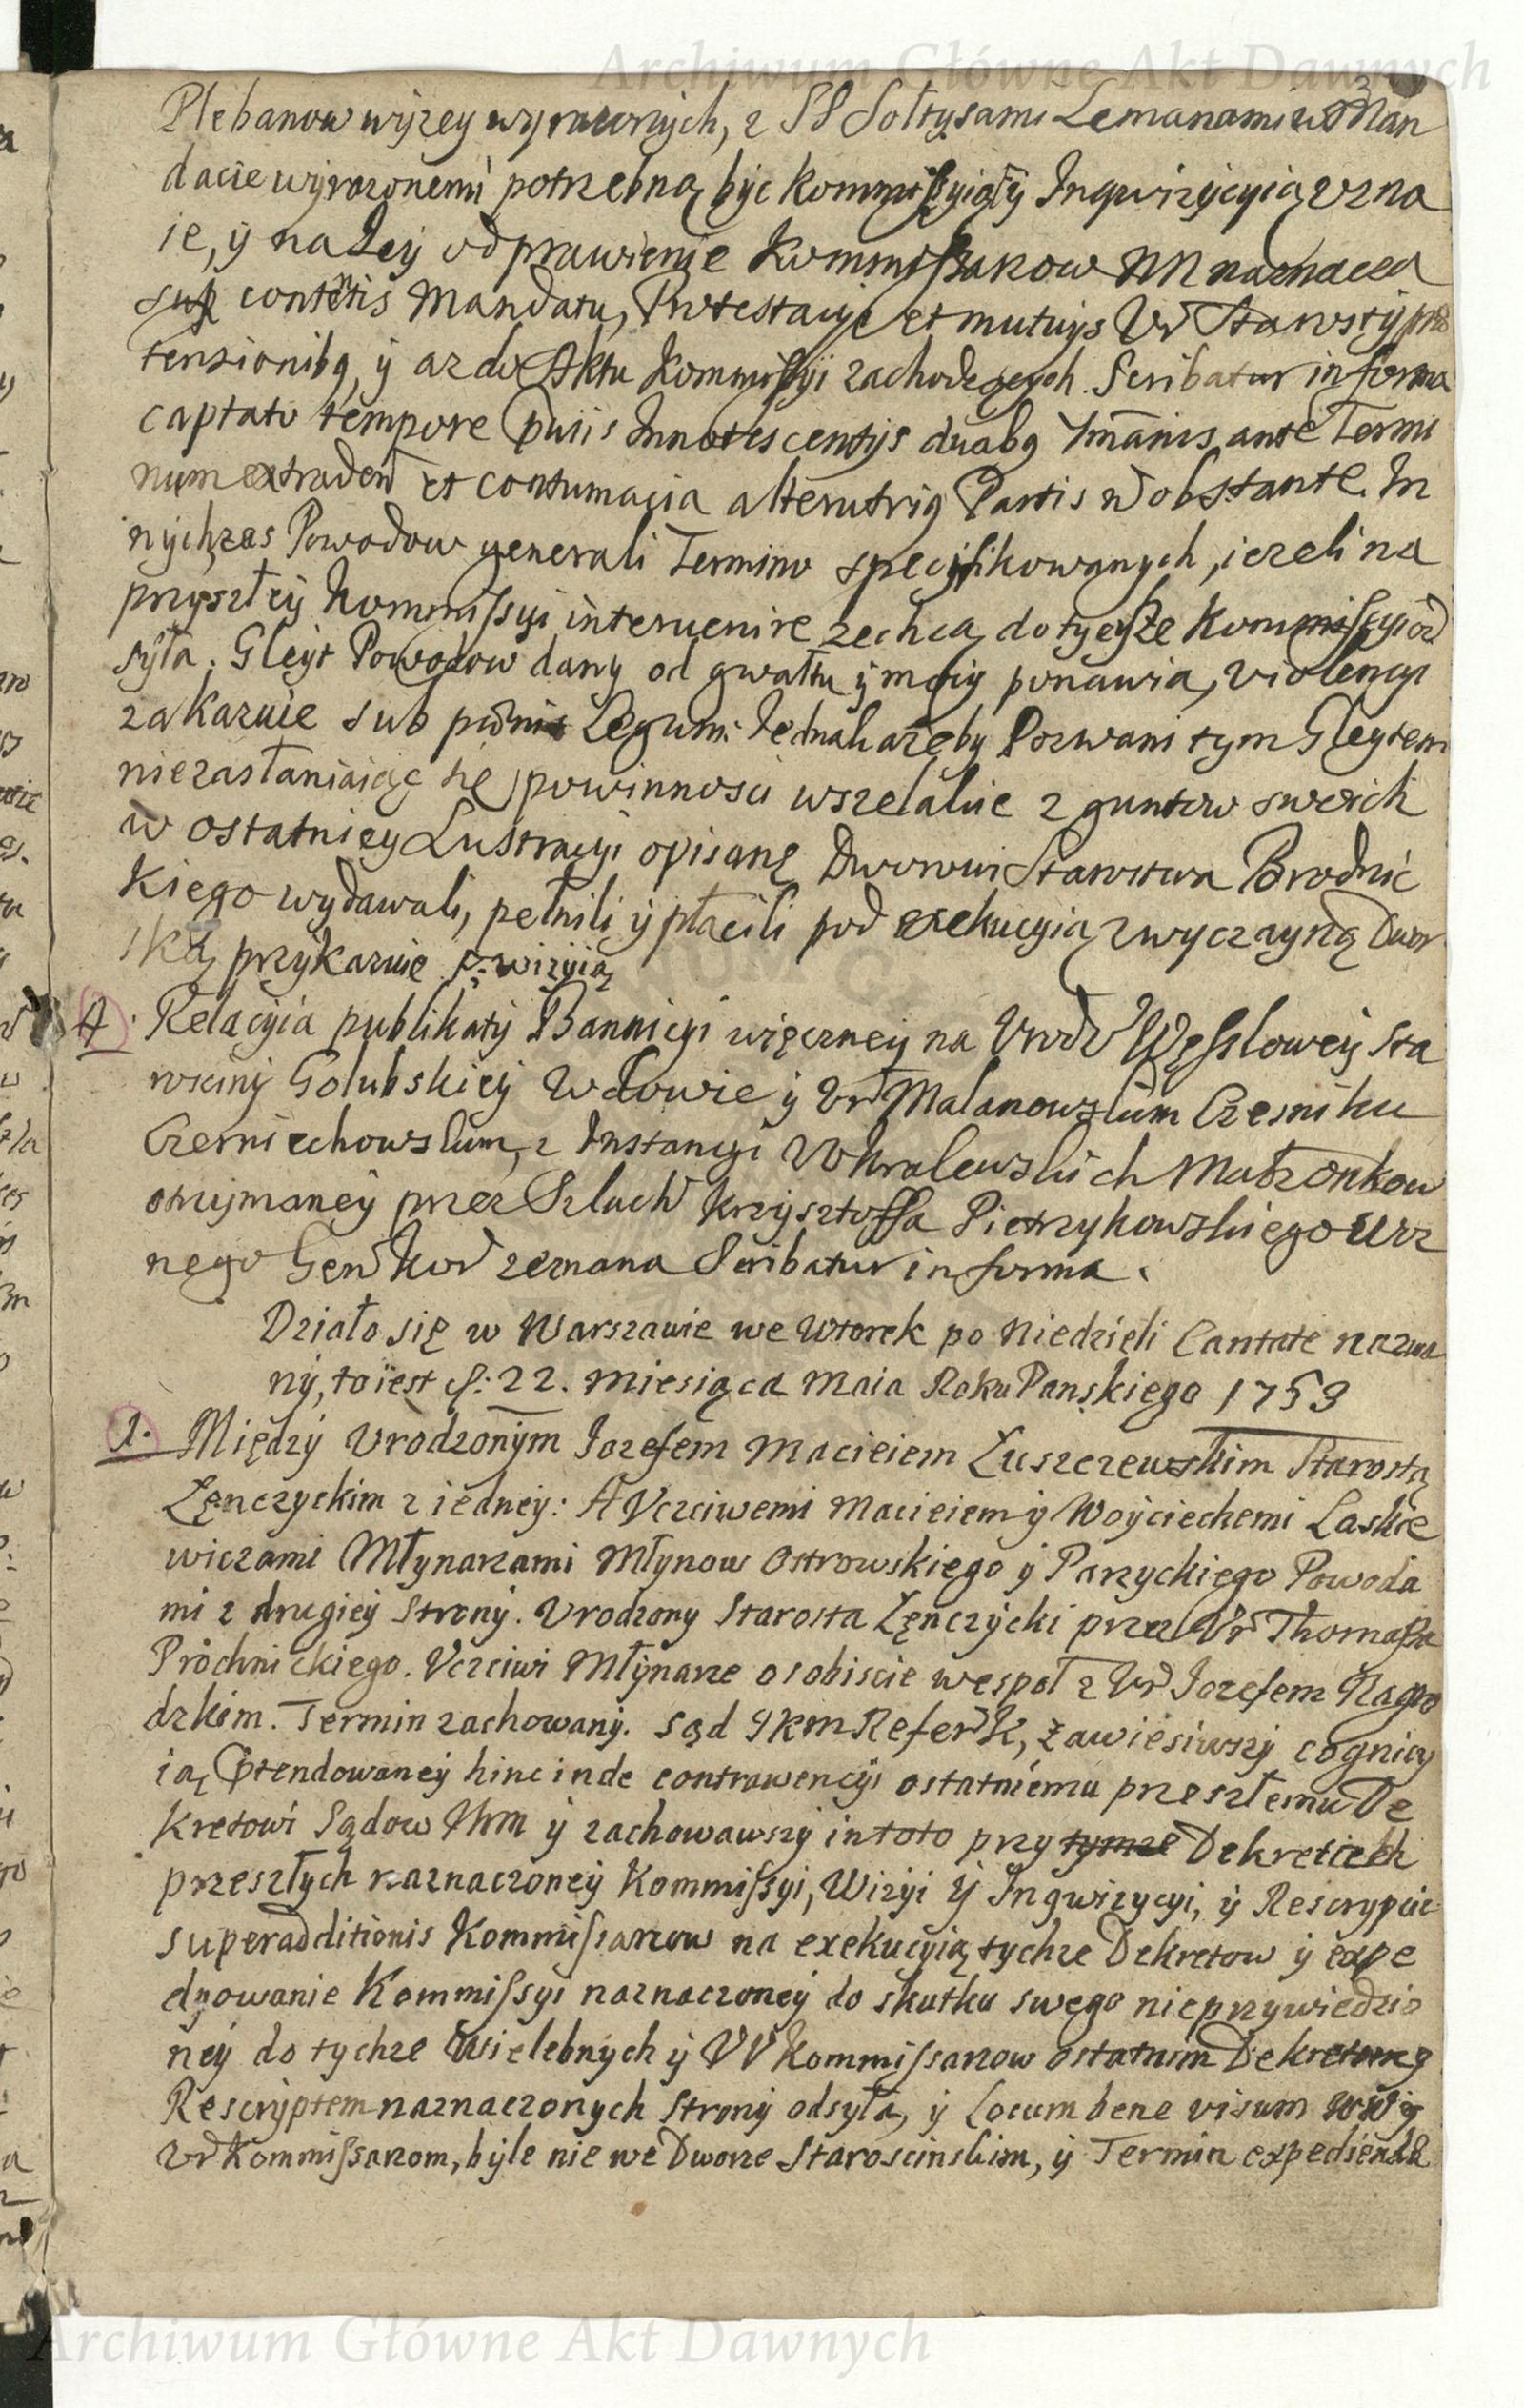 Archiwum Główne Akt Dawnych
3
Plebanow wyzey wyrazonych, z SS Sołtysami Lemanami w Man
dacie wyrazonemi potrzebną byc Kommissyią ÿ Inqwizycyią uzna
ie, ÿ na Jeÿ odprawienie Kommissarzow NN naznacza
sup contentis Mandatu, Protestacyi et mutuis Ur Starosty præ
tensionibq, ÿ az do Aktu Kommissÿi zachodzących. Scribatur in forma
captato tempore Innotescentijs duabq ante Termi
num extraden et contumacia alterutriq Partis n obstante. In
nychzas Powodow generali Termino specyfikowanych, iezeli na
przyszłeÿ Kommissyi intervenire zechcą, do tyeyze Kommissyi od
syła. Gleÿt Powodow dany od gwałtu ÿ mocy ponawia, violencyi
zakazuie sub pœnis Legum. Jednak azeby Pozwani tym Gleytem
niezasłaniaiąc się powinnosci wszelakie z gruntow swoich
w ostatniey Lustracyi opisane Dworowi Starostwa Brodnic
kiego wydawali, pełnili ÿ płacili pod exekucyią zwyczayną Dwor
ską przykazuie
A. Relacyia publikaty Bannicyi więczney na Urodz Węsslowey Sta
rosciny Golubskieÿ Wdowie ÿ Ur Malanowskim Czesniku
Czerniechowskim, z Instancyi W Kralewskich Małzonkow
otrzymaney przez Szlach Krzysztoffa Pietrzykowskiego Woz
nego Gen Kor zeznana Scribatur in forma.
Działo się w Warszawie we Wtorek po Niedzieli Cantate nazwa
nÿ, to iest d: 22. Miesiąca Maia Roku Panskiego 1753
1. Międzÿ Urodzonÿm Jozefem Macieiem Łuszczewskim Starostą
Łęnczyckim z iedneÿ: A Uczciwemi Macieiem ÿ Woÿciechemi Laskie
wiczami Młynarzami Młynow Ostrowskiego ÿ Parzyckiego Powoda
mi z drugieÿ Stronÿ. Urodzony Starosta Łęnczÿcki przez Ur Thomasza
Prochnickiego. Uczciwi Młÿnarze osobiscie wespoł z Ur Jozefem Nagro
dzkim. Termin zachowanÿ. Sąd JKM Refer K, zawiesiwszÿ cognicy
ią prtendowaneÿ hinc inde contrawencyi ostatniemu przeszłemu De
kretowi Sądow NM ÿ zachowawszÿ in toto przy tymze Dekreciech
przeszłych naznaczoneÿ Kommissyi, Wizyi ÿ Inqwizycyi, ÿ Rescrypcie
superadditionis Kommissarzow na exekucyią tychze Dekretow ÿ expe
dyowanie Kommissyi naznaczoneÿ do skutku swego nieprzywiedzio
neÿ do tychze Wielebnÿch ÿ UU Kommissarzow ostatnim Dekretem ÿ
Rescrÿptem naznaczonych Stronÿ odsyła, ÿ Locum bene visum
Ur Kommissarzom, bÿle nie we Dworze Staroscinskim, ÿ Termin expediendæ
Archiwum Główne Akt Dawnych